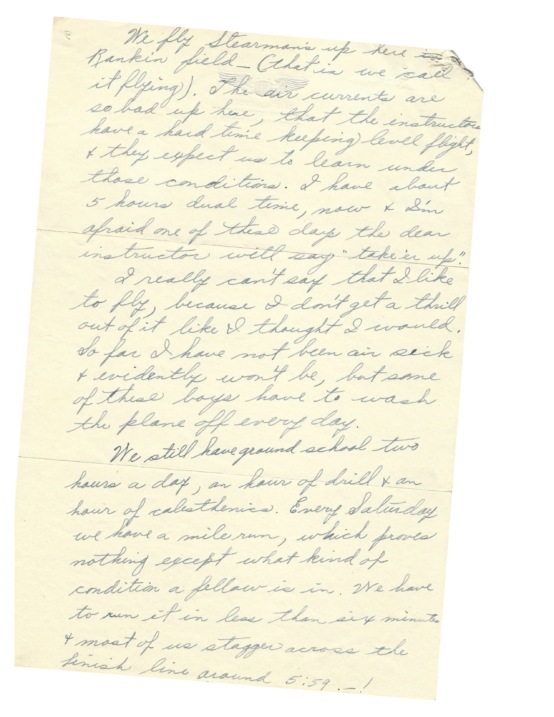 We fly Stearman's up here in
Rankin field - (that is we call
it flying). The air currents are
so bad up here, that the instructors
have a hard time keeping level flight,
& they expect us to learn under
those conditions. I have about
5 hours dual time, now & I'm
afraid one of these days the dear
instructor will say "take'er up".
I really can't say that I like
to fly, because I don't get a thrill
out of it like I thought I would.
So far I have not been air sick
& evidently won't be, but some
of these boys have to wash
the plane off every day.
We still have ground school two
hours a day, an hour of drill & an
hour of calisthenics. Every Saturday
we have a mile run, which proves
nothing except what kind of
condition a fellow is in. We have
to run it in less than six minutes
& most of us stagger across the
finish line around 5:59.-!